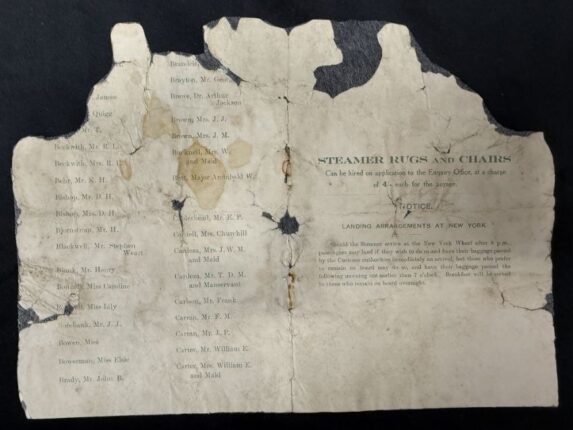 James
Quigg
T.
Beckwith, Mr. R. L.
Beckwith, Mrs. R.
Behr, Mr. K. H.
Bishop, Mr. D. H.
Bishop, Mrs. D. H.
Bjornstrom, Mr. H.
Blackwell, Mr. Stephen
Weart
Blank, Mr. Henry
Bonnell, Miss Caroline
Miss Lily
Borebank, Mr. J. J.
Bowen, Miss
Bowerman, Miss Elsie
Brady, Mr. John B.
Brandeis,
Brayton, Mr. George
Brewe, Dr. Arthur
Jackson
Brown, Mrs. J. J.
Brown, Mrs. J. M.
Bucknell, Mrs. W.
and Maid
Butt, Major Archibald W.
Calderhead, Mr. E. P.
Cardell, Mrs. Churchill
Cardeza, Mrs. J. W. M.
and Maid
Cardeza, Mr. T. D. M.
and Manservant
Carlson, Mr. Frank
Carran, Mr. F. M.
Carran, Mr. J. P.
Carter, Mr. William E.
Carter, Mrs. William E.
and Maid
STEAMER RUGS AND CHAIRS
Can be hired on application to the Enquiry Office, at a charge
of 4/- each for the voyage.
NOTICE.
LANDING ARRANGEMENTS AT NEW YORK
Should the Steamer arrive at the New York Wharf after 8 p.m.,
passengers may land if they wish to do so and have their baggage passed
by the Customs authorities immediately on arrival, but those who prefer
to remain on board may do so, and have their baggage passed the
following morning not earlier than 7 o'clock. Breakfast will be served
to those who remain on board overnight.